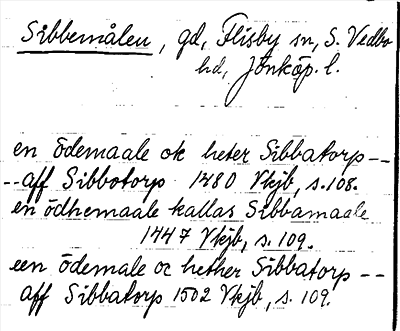 Sibbemålen, gd, Flisby sn, S. Vedbo
hd, Jönköp. l.
en ödemaale ok heter Sibbatorp --
-- aff Sibbotorp 1480 Vkjb, s. 108.
en ödhemaale kallas Sibbamaale
1447 Vkjb, s. 109.
een ödemale oc hether Sibbatorp --
aff Sibbatorp 1502 Vkjb, s. 109.